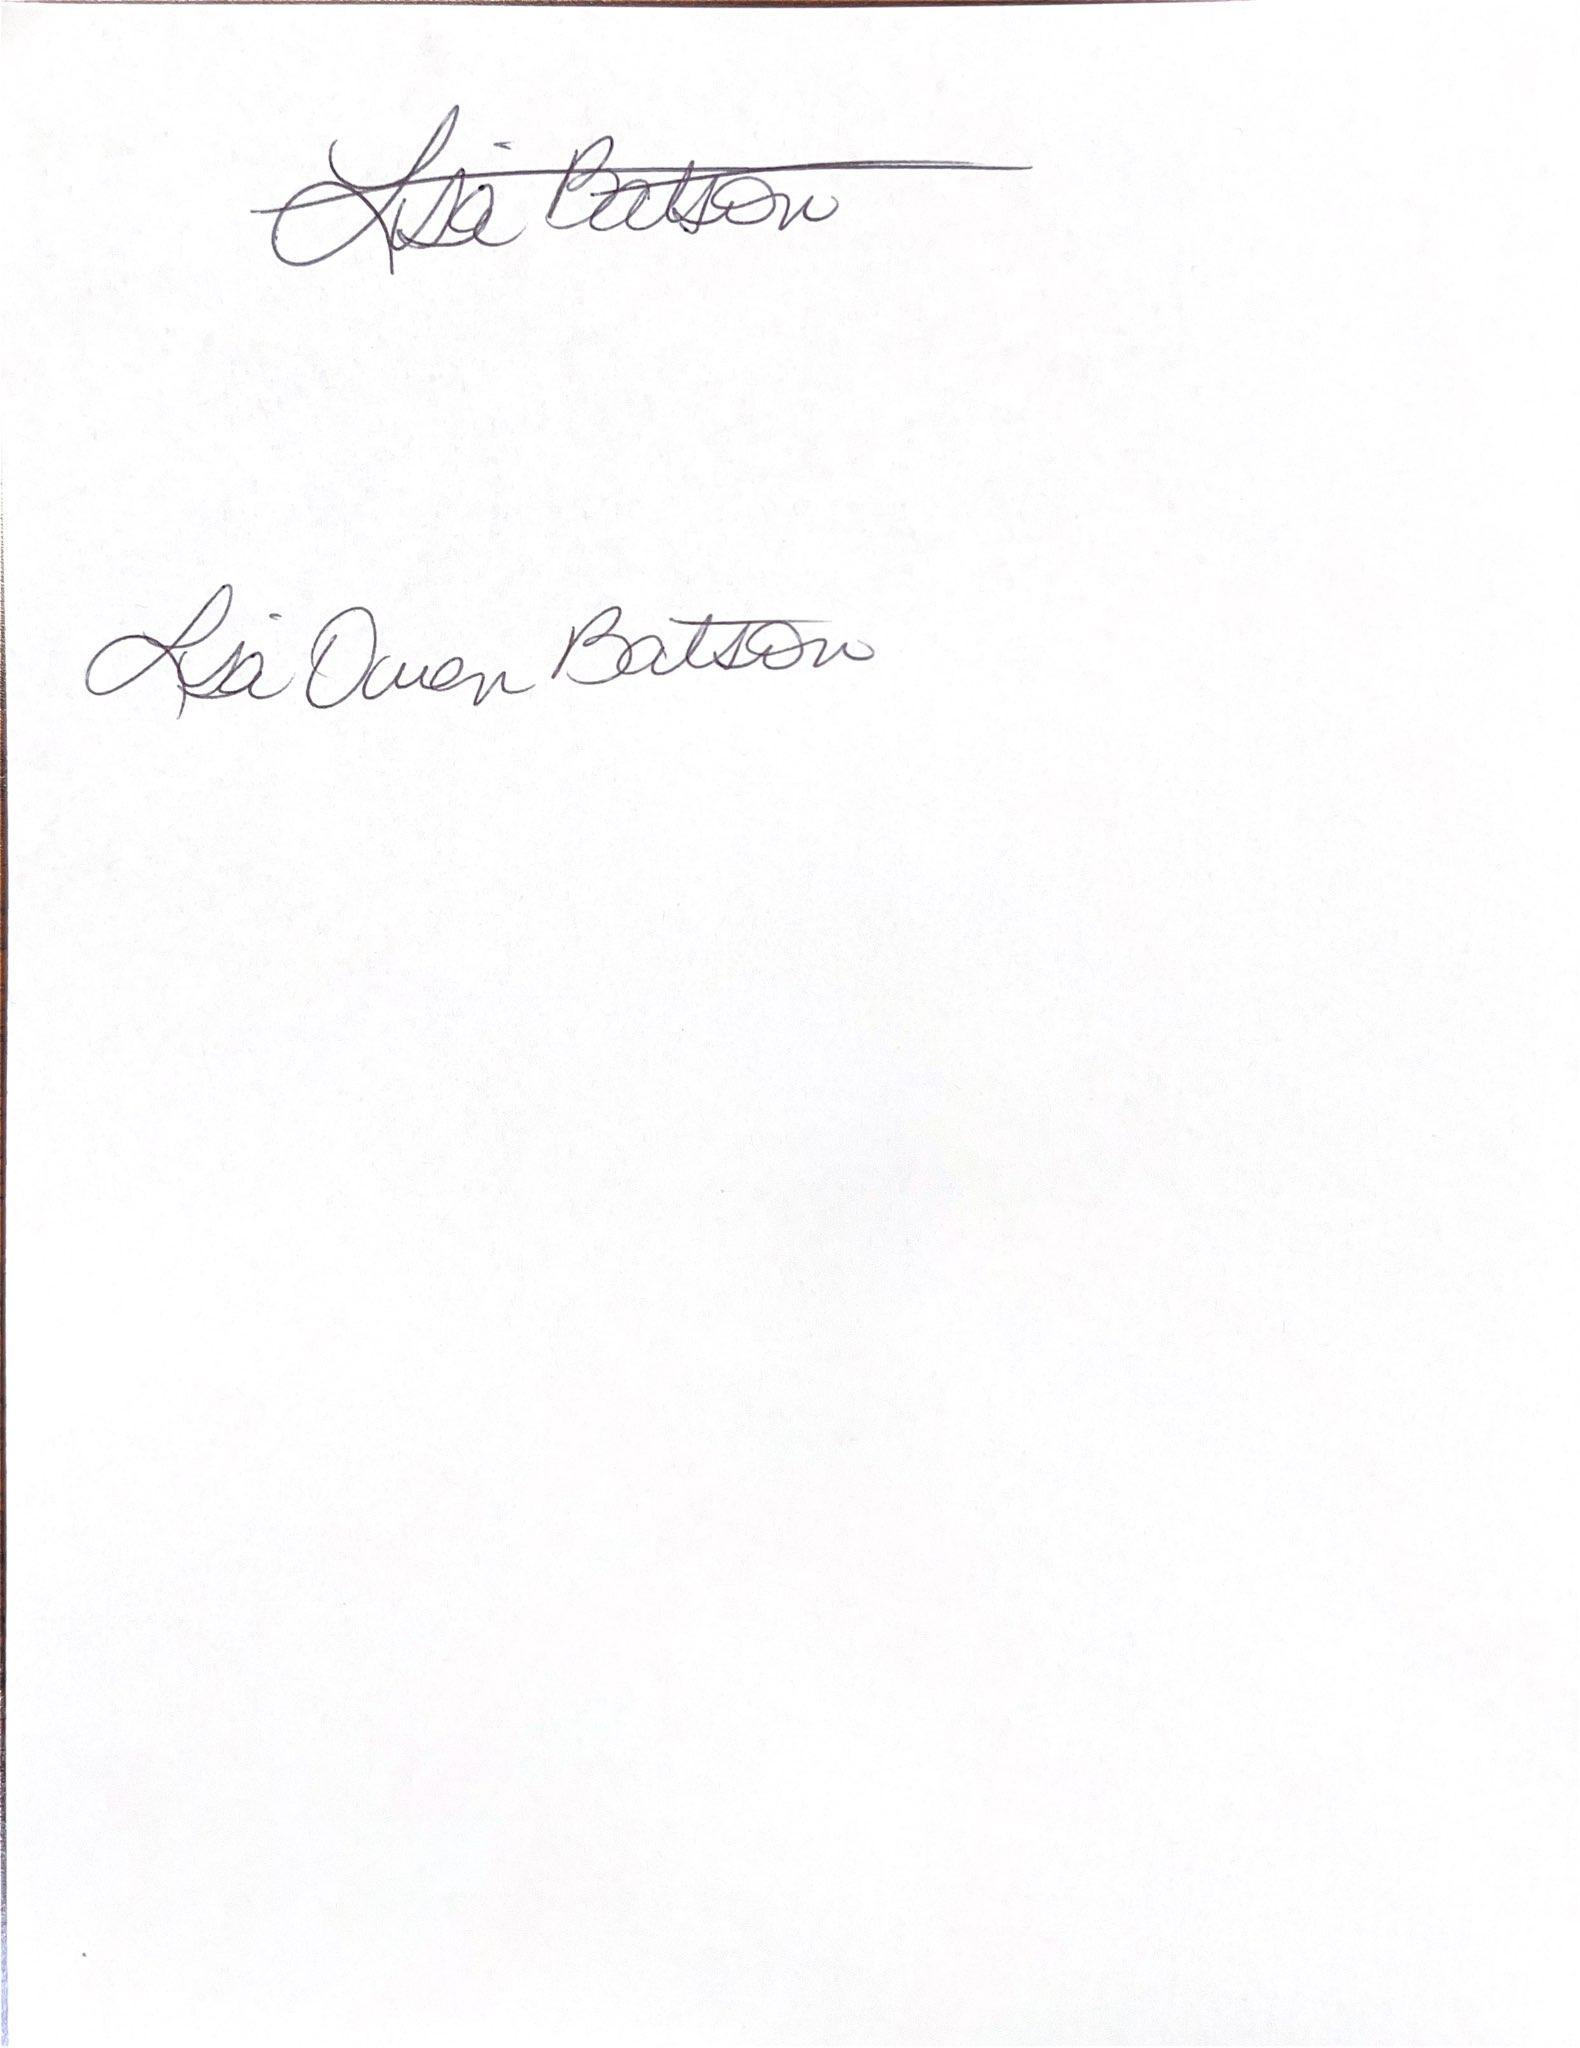 Lisa Batson
Lisa Owen Batson